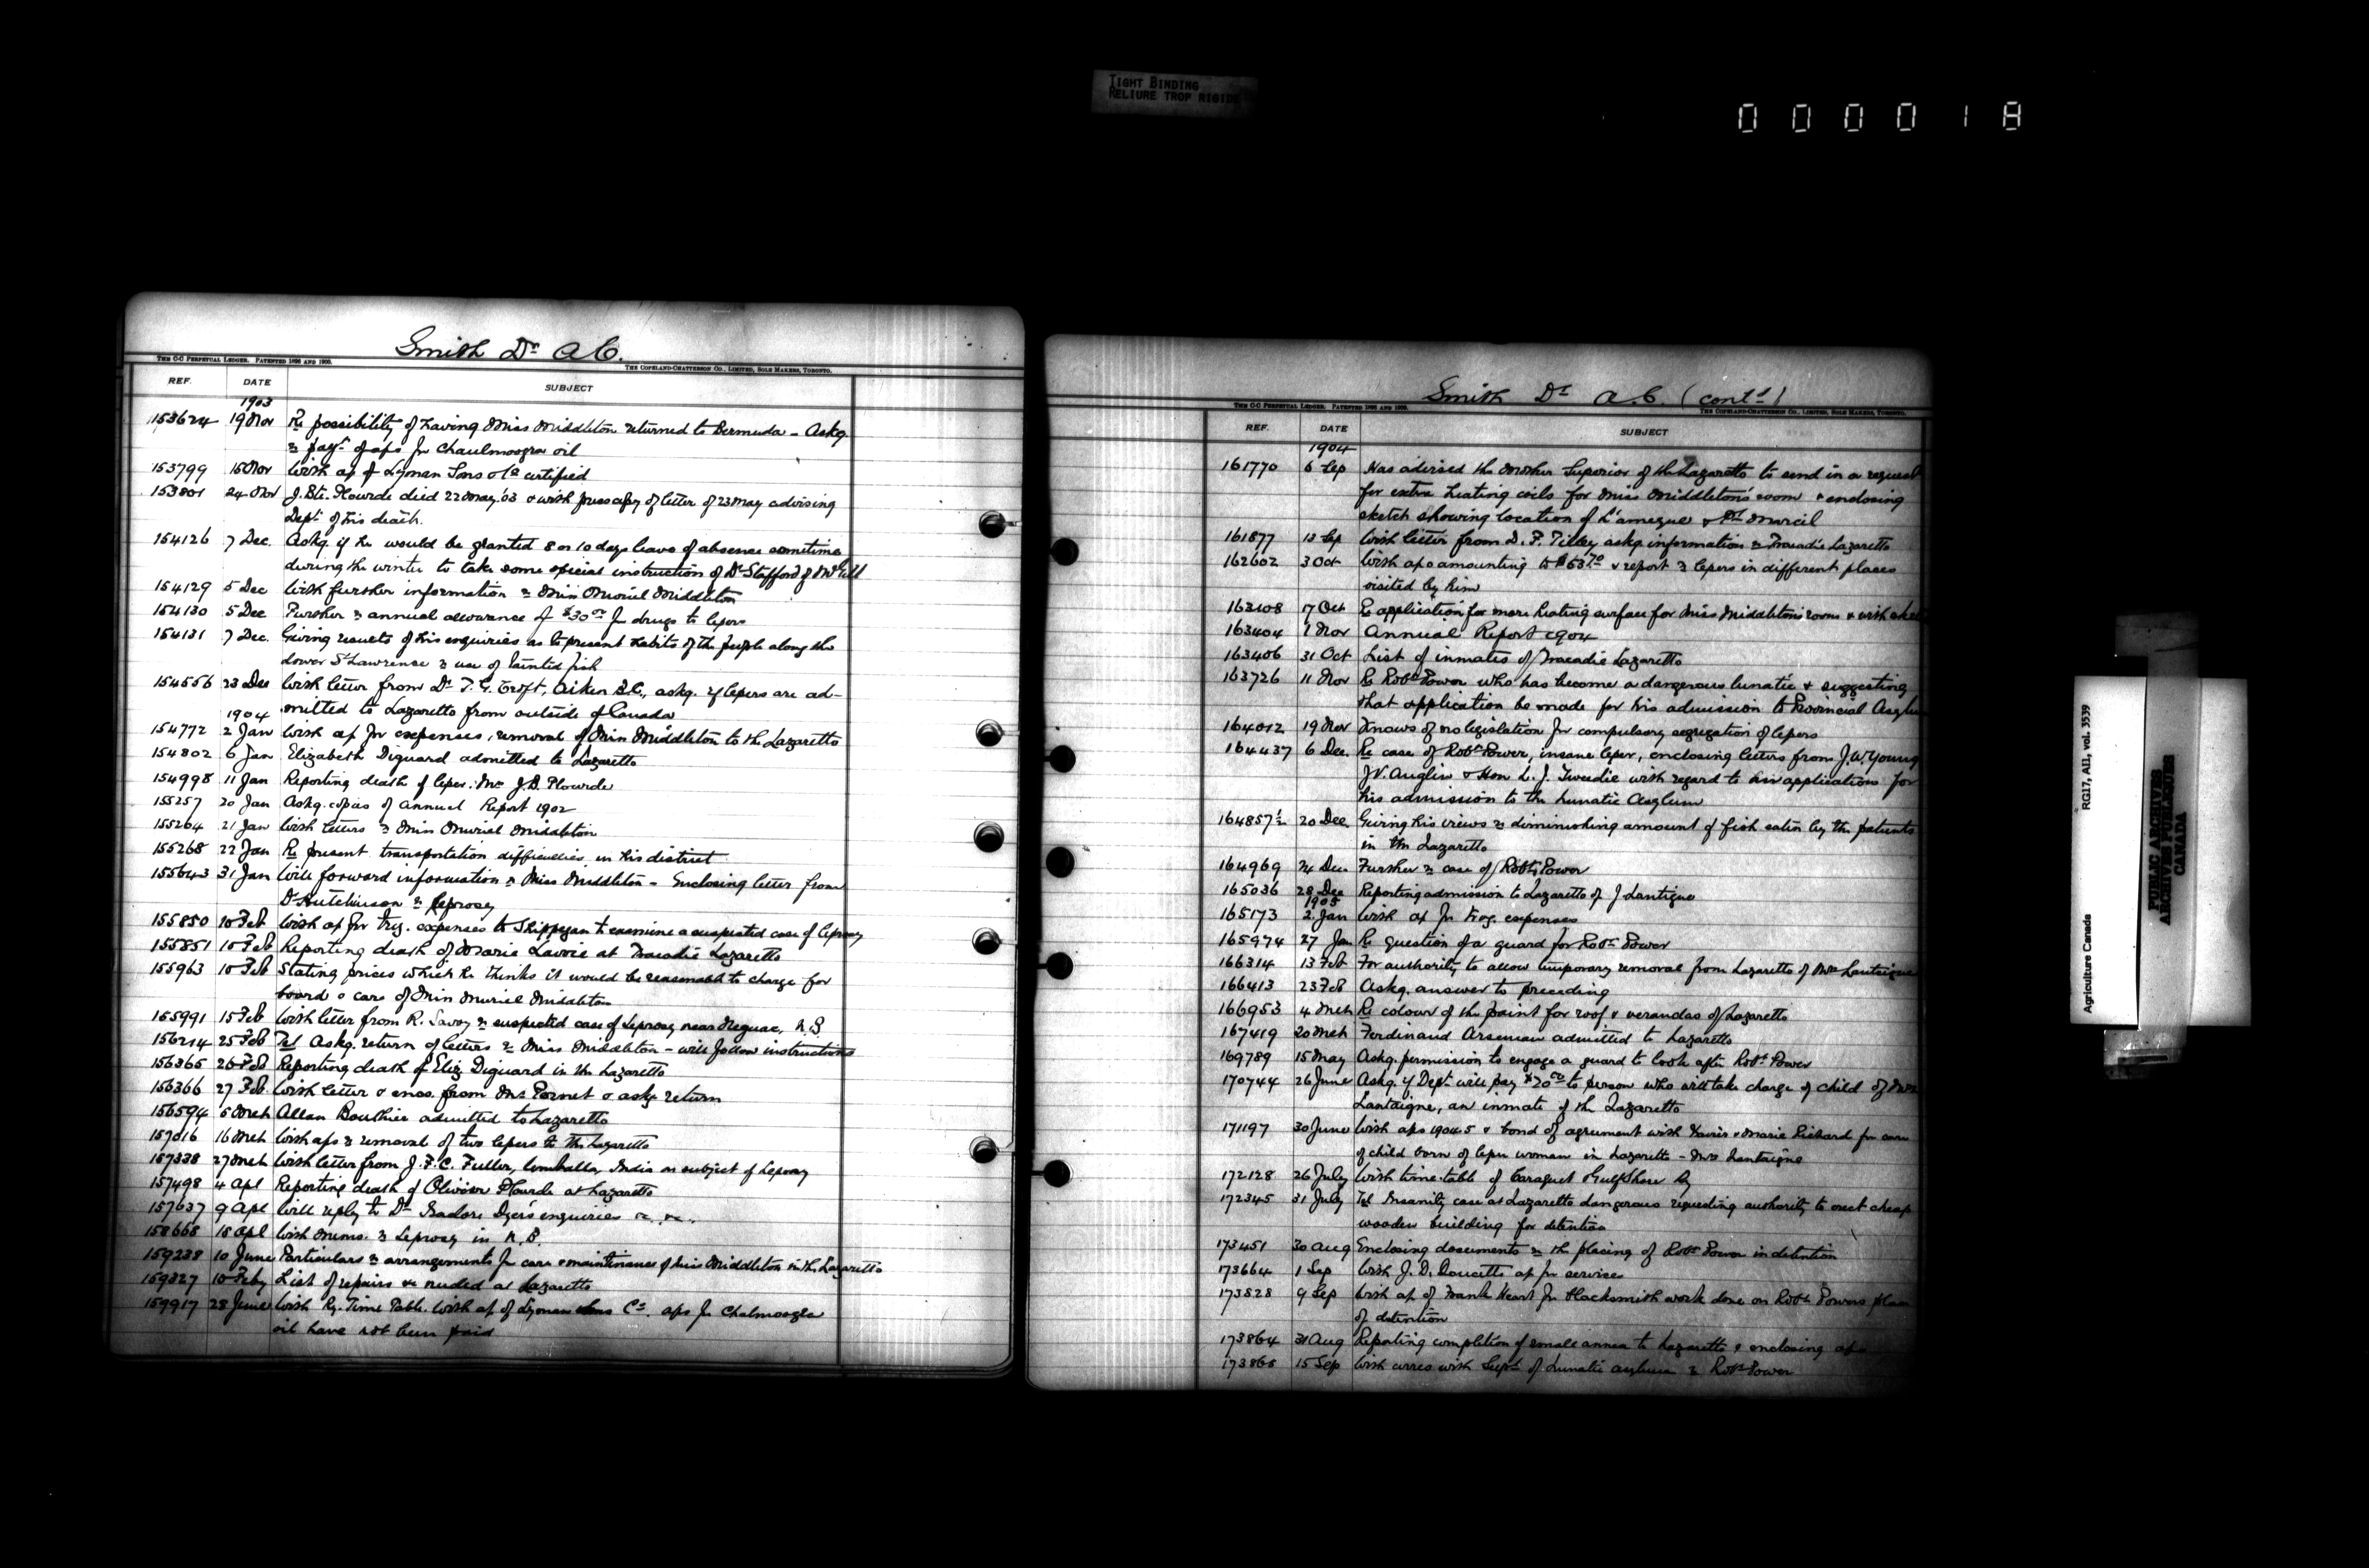 TIGHT BINDING
RELIURE TROP RIGIDE
000018
Smith Dr A C.
THE C-C PERPETUAL LEDGER. PATENTED 1896 AND 1900.
THE COPELAND-CHATTERSON CO., LIMITED, SOLE MAKERS, TORONTO.
REF. DATE SUBJECT
1903
153624 19 Nov Re possibility of having Miss Middleton returned to Bermuda - Askg.
re payt of a/s for Chaulmoogra oil
153799 16 Nov With a/c of Lyman Sons & Co certified
153801 24 Nov J. Bte. Plourde died 22 May '03 & with press copy of letter of 23 May advising
Dept of his death.
154126 7 Dec. Askg. if he would be granted 8 or 10 days leave of absence sometime
during the winter to take some special instruction of Dr Stafford of McGill
154129 5 Dec With further information re Miss Muriel Middleton
154130 5 Dec Further re annual allowance of $30 00 for drugs to lepers
154131 7 Dec. Giving results of his enquiries as to present habits of the people along the
Lower St Lawrence re use of tainted fish
154556 23 Dec With letter from Dr T. G. Croft, Aiken S.C., askg. if lepers are ad-
1904 mitted to Lazaretto from outside of Canada
154772 2 Jan With a/c for expenses, removal of Miss Middleton to the Lazaretto
154802 6 Jan Elizabeth Diguard admitted to Lazaretto
154998 11 Jan Reporting death of leper: Mr J. B. Plourde
155257 20 Jan Askg. copies of Annual Report 1902
155264 21 Jan With letters re Miss Muriel Middleton
155268 22 Jan Re present transportation difficulties in his district
155643 31 Jan Will forward information re Miss Middleton - Enclosing letter from
Dr Hutchinson re leprosy
155850 10 Feb With a/c for trvg. expenses to Shippegan to examine a suspected case of leprosy
155851 10 Feb Reporting death of Marie Lavoie at Tracadie Lazaretto
155963 10 Feb Stating prices which he thinks it would be reasonable to charge for
board & care of Miss Muriel Middleton
155991 15 Feb With letter from R. Savoy re suspected case of Leprosy near Neguac, N.B.
156214 25 Feb Tel Askg. return of letters re Miss Middleton - will follow instructions
156365 26 Feb Reporting death of Eliz. Diguard in the Lazaretto
156366 27 Feb. With letter & encs. from Mrs Pornet & askg return
156594 5 Mch Allan Bouthier admitted to Lazaretto
157016 16 Mch With a/cs re removal of two lepers to the Lazaretto
157338 27 Mch With letter from J. F. C. Fuller, Umballa, India on subject of Leprosy
157498 4 Apl Reporting death of Olivier Plourde at Lazaretto
157637 9 Apl Will reply to Dr Isadore Dyer's enquiries
158668 18 Apl With memo. re Leprosy in N.B.
159238 10 June Particulars re arrangements for care & maintenance of Miss Middleton in the Lazaretto
159327 10 Feby List of repairs &c needed at Lazaretto
159917 28 June With Ry. Time Table. With a/c of Lyman Sons Co. a/cs for Chalmoogra
oil have not been paid
Smith Dr A. C. (contd)
THE C-C PERPETUAL LEDGER. PATENTED 1896 AND 1900.
THE COPELAND-CHATTERSON CO., LIMITED, SOLE MAKERS, TORONTO.
REF. DATE SUBJECT
1904
161770 6 Sep Has advised the Mother Superior of the Lazaretto to send in a request
for extra heating coils for Miss Middleton's room & enclosing
sketch showing location of L'ameque & Pt Marcil
161877 13 Sep With letter from L. P. Tilley askg information re Tracadie Lazaretto
162602 3 Oct With a/cs amounting to $53.70 & report re lepers in different places
visited by him
163108 17 Oct Re application for more heating surface for Miss Middleton's room & with
163404 1 Nov Annual Report 1904
163406 31 Oct List of inmates of Tracadie Lazaretto
163726 11 Nov Re Robt Power who has become a dangerous lunatic & suggesting
that application be made for his admission to Provincial Asylum
164012 19 Nov Knows of no legislation for compulsory segregation of lepers
164437 6 Dec. Re case of Robt Power, insane leper, enclosing letters from J. W. Young
J. V. Anglin & Hon L. J. Tweedie with regard to his application for
his admission to the Lunatic Asylum
164857½ 20 Dec. Giving his views re diminishing amount of fish eaten by the patients
in the Lazaretto
164969 24 Dec Further re case of Robt Power
165036 28 Dec Reporting admission to Lazaretto of J Lantigue
1905
165173 2. Jan With a/c for trvg. expenses
165974 27 Jan Re question of a guard for Robt Power
166314 13 Feb For authority to allow temporary removal from Lazaretto of Mrs Lantaigne
166413 23 Feb Askg. answer to preceding
166953 4 Mch Re colour of the paint for roof & verandas of Lazaretto
167419 20 Mch Ferdinand Arseneau admitted to Lazaretto
169789 15 May Askg. permission to engage a guard to look after Robt Power
170744 26 June Askg. if Dept. will pay $20 00 to person who will take charge of child of Mrs
Lantaigne, an inmate of the Lazaretto
171197 30 June With a/cs 1904-5 & bond of agreement with Xavier & Marie Richard for care
of child born of leper woman in Lazaretto - Mrs Lantaigne
172128 26 July With time-table of Caraquet & Gulf Shore Ry
172345 31 July Tel Insanity case at Lazaretto dangerous requesting authority to erect cheap
wooden building for detention
173451 30 Aug Enclosing documents re the placing of Robt Power in detention
173664 1 Sep With J. D. Doucett's a/c for services
173828 9 Sep With a/c of Frank Heart for blacksmith work done on Robt Powers place
of detention
173864 31 Aug Reporting completion of small annex to Lazaretto & enclosing a/cs
173865 15 Sep With corres with Supt. of Lunatic Asylum re Robt Power
Agriculture Canada RG17, AII, vol. 3539
PUBLIC ARCHIVES
ARCHIVES PUBLIQUES
CANADA